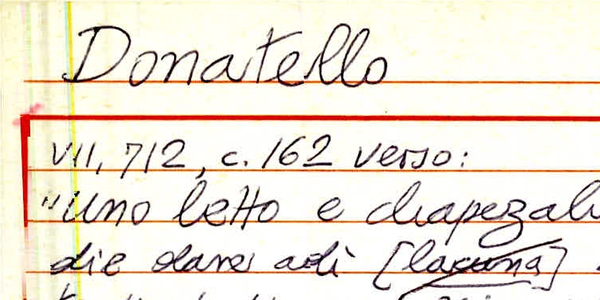 Donatello
VII, 712, c. 162 verso:
"Uno letto e chapezali
die dare adì [lacuna]